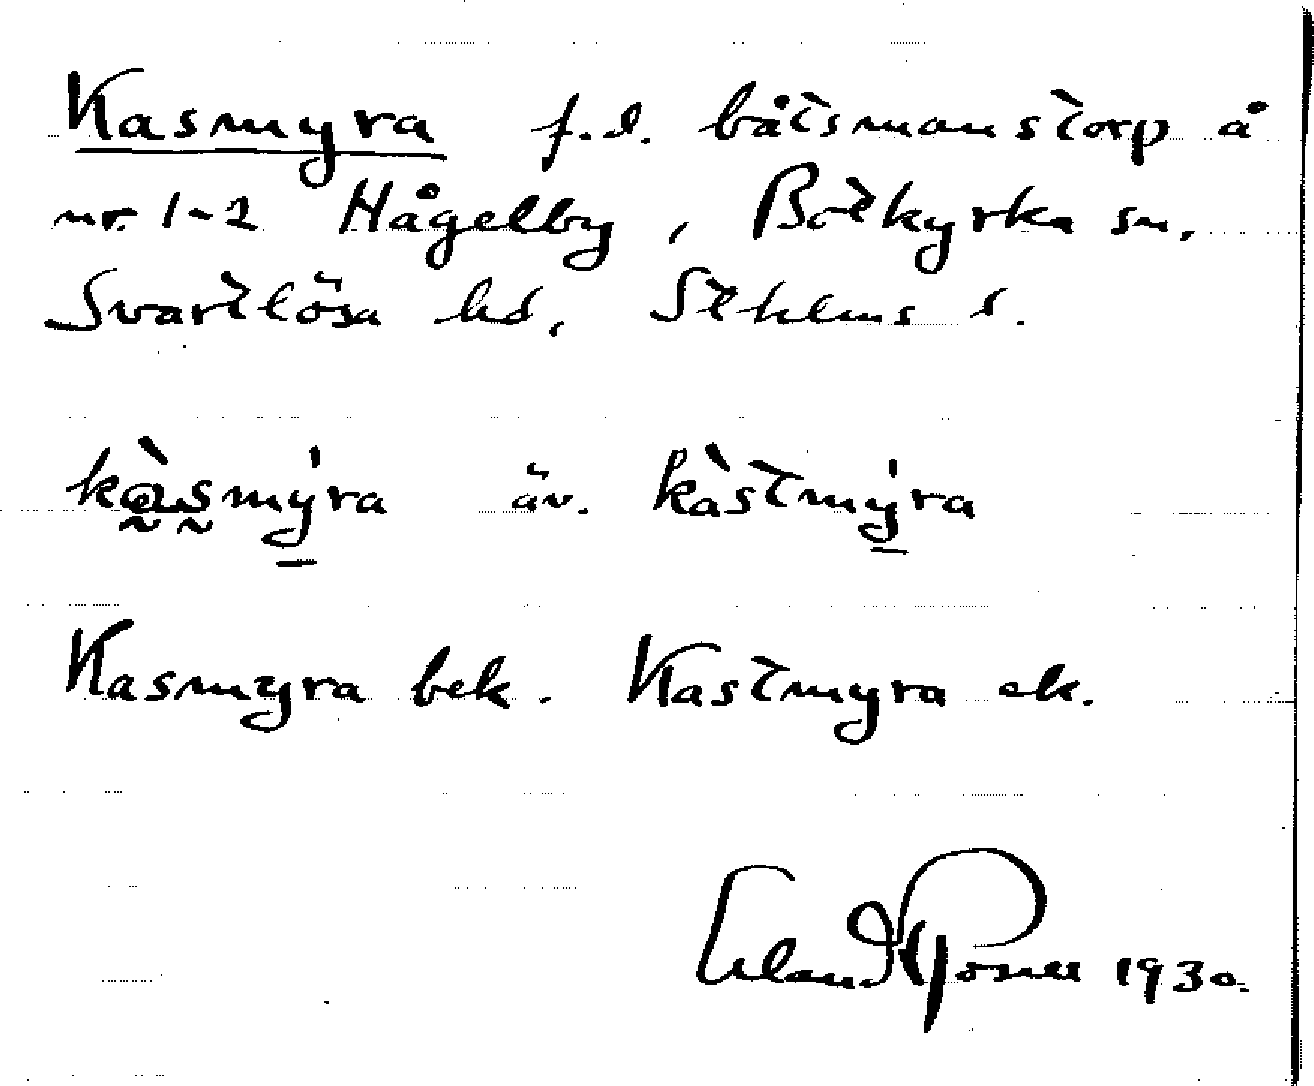 Kasmyra f.d. båtsmanstorp å
nr. 1-2 Hågelby, Botkyrka sn,
Svartlösa hd, Sthlms l.
kàsmy̍ra äv. kàstmy̍ra
Kasmyra bek. Kastmyra ek.
Erland Rosell 1930.